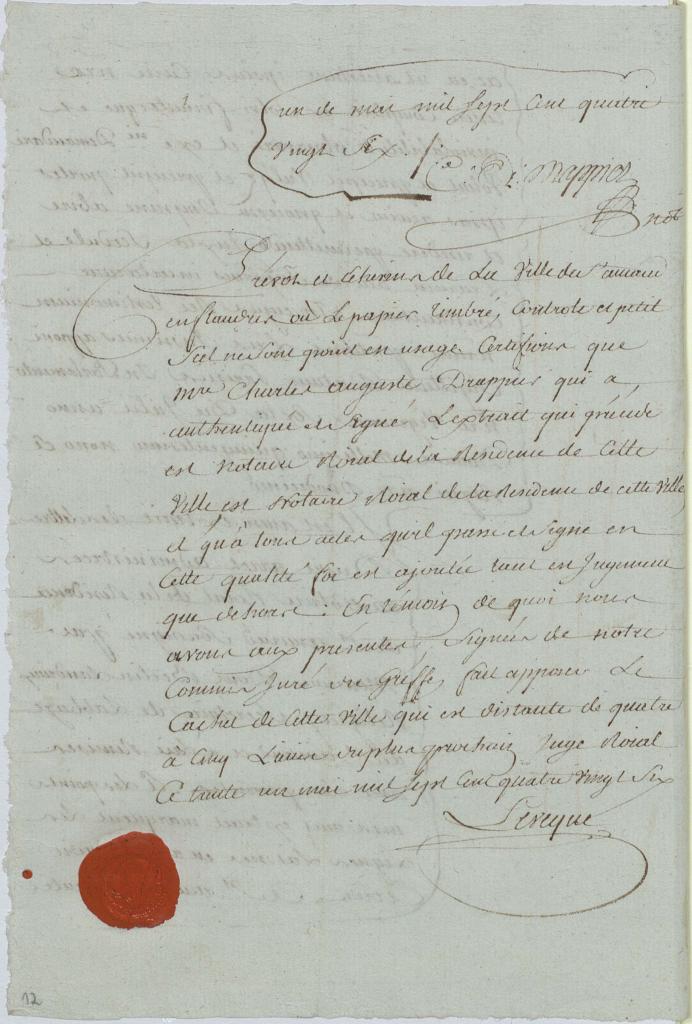 un de mai mil sept Cent quatre
vingt Six
C: A: Drappier
not
Prevot et Echevins de La Ville de St amand
en flandres où Le papier timbré, Controle et petit
Scel ne Sont point en usage Certifions que
mre Charles auguste Drappier qui a
authentiqué et Signé L'extrait qui précede
est notaire Roial de la Residence de Cette
Ville est Notaire Roial de la Residence de cette Ville
et qu'à tous actes qu'il passe et Signe en
Cette qualité foi est ajoutée tant en Jugement
que dehors : En témoin de quoi nous
avons aux présentes, Signées de notre
Commis Juré au Greffe, fait apposer Le
Cachet de Cette Ville qui est distante de quatre
à Cinq Lieues du plus prochain Juge Roial
Ce trente un mai mil Sept Cent quatre vingt Six
Leveque
12